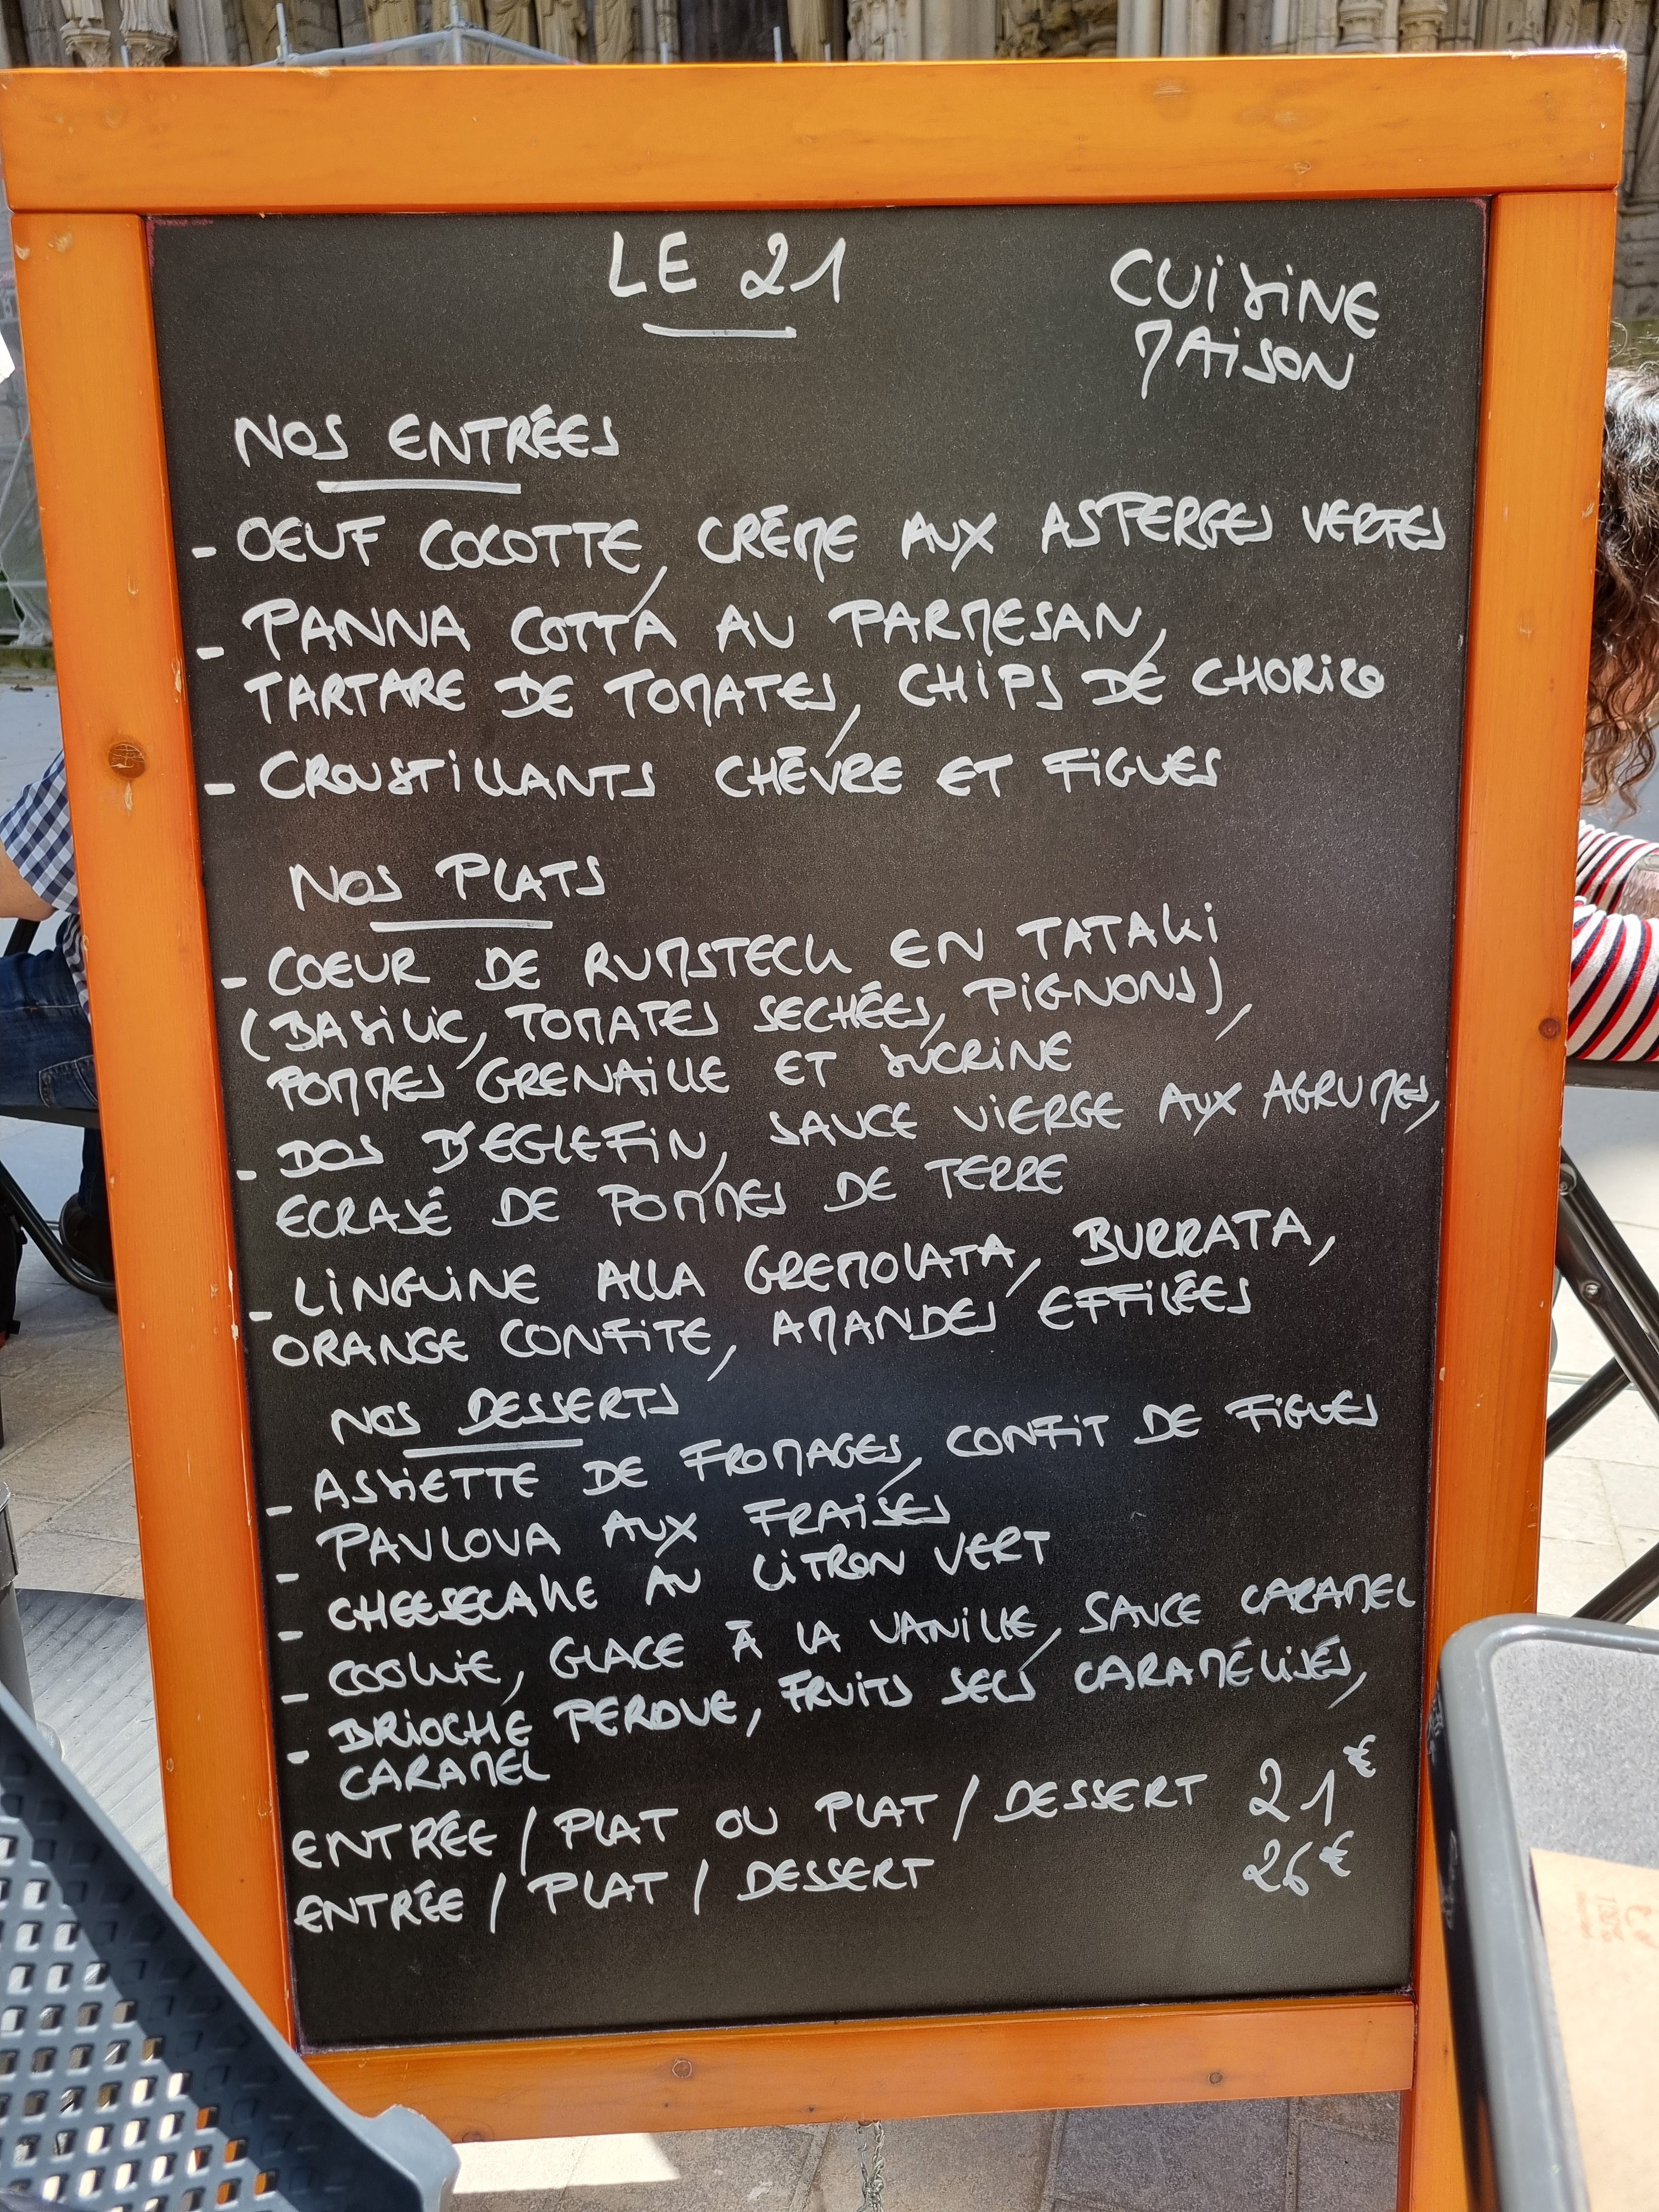 LE 21
CUISINE
MAISON
NOS ENTRÉES
- OEUF COCOTTE, CRÈME AUX ASPERGES VERTES
- PANNA COTTA AU PARMESAN,
TARTARE DE TOMATES, CHIPS DE CHORIZO
- CROUSTILLANTS CHÈVRE ET FIGUES
NOS PLATS
- COEUR DE RUMSTECK EN TATAKI
(BASILIC, TOMATES SECHÉES, PIGNONS),
POMMES GRENAILLE ET SUCRINE
- DOS D'EGLEFIN, SAUCE VIERGE AUX AGRUMES,
ECRASÉ DE POMMES DE TERRE
- LINGUINE ALLA GREMOLATA, BURRATA,
ORANGE CONFITE, AMANDES EFFILÉES
NOS DESSERTS
- ASSIETTE DE FROMAGES, CONFIT DE FIGUES
- PAVLOVA AUX FRAISES
- CHEESECAKE AU CITRON VERT
- COOKIE, GLACE À LA VANILLE, SAUCE CARAMEL
- BRIOCHE PERDUE, FRUITS SECS CARAMÉLISÉS,
CARAMEL
ENTRÉE / PLAT OU PLAT / DESSERT 21€
ENTRÉE / PLAT / DESSERT 26€